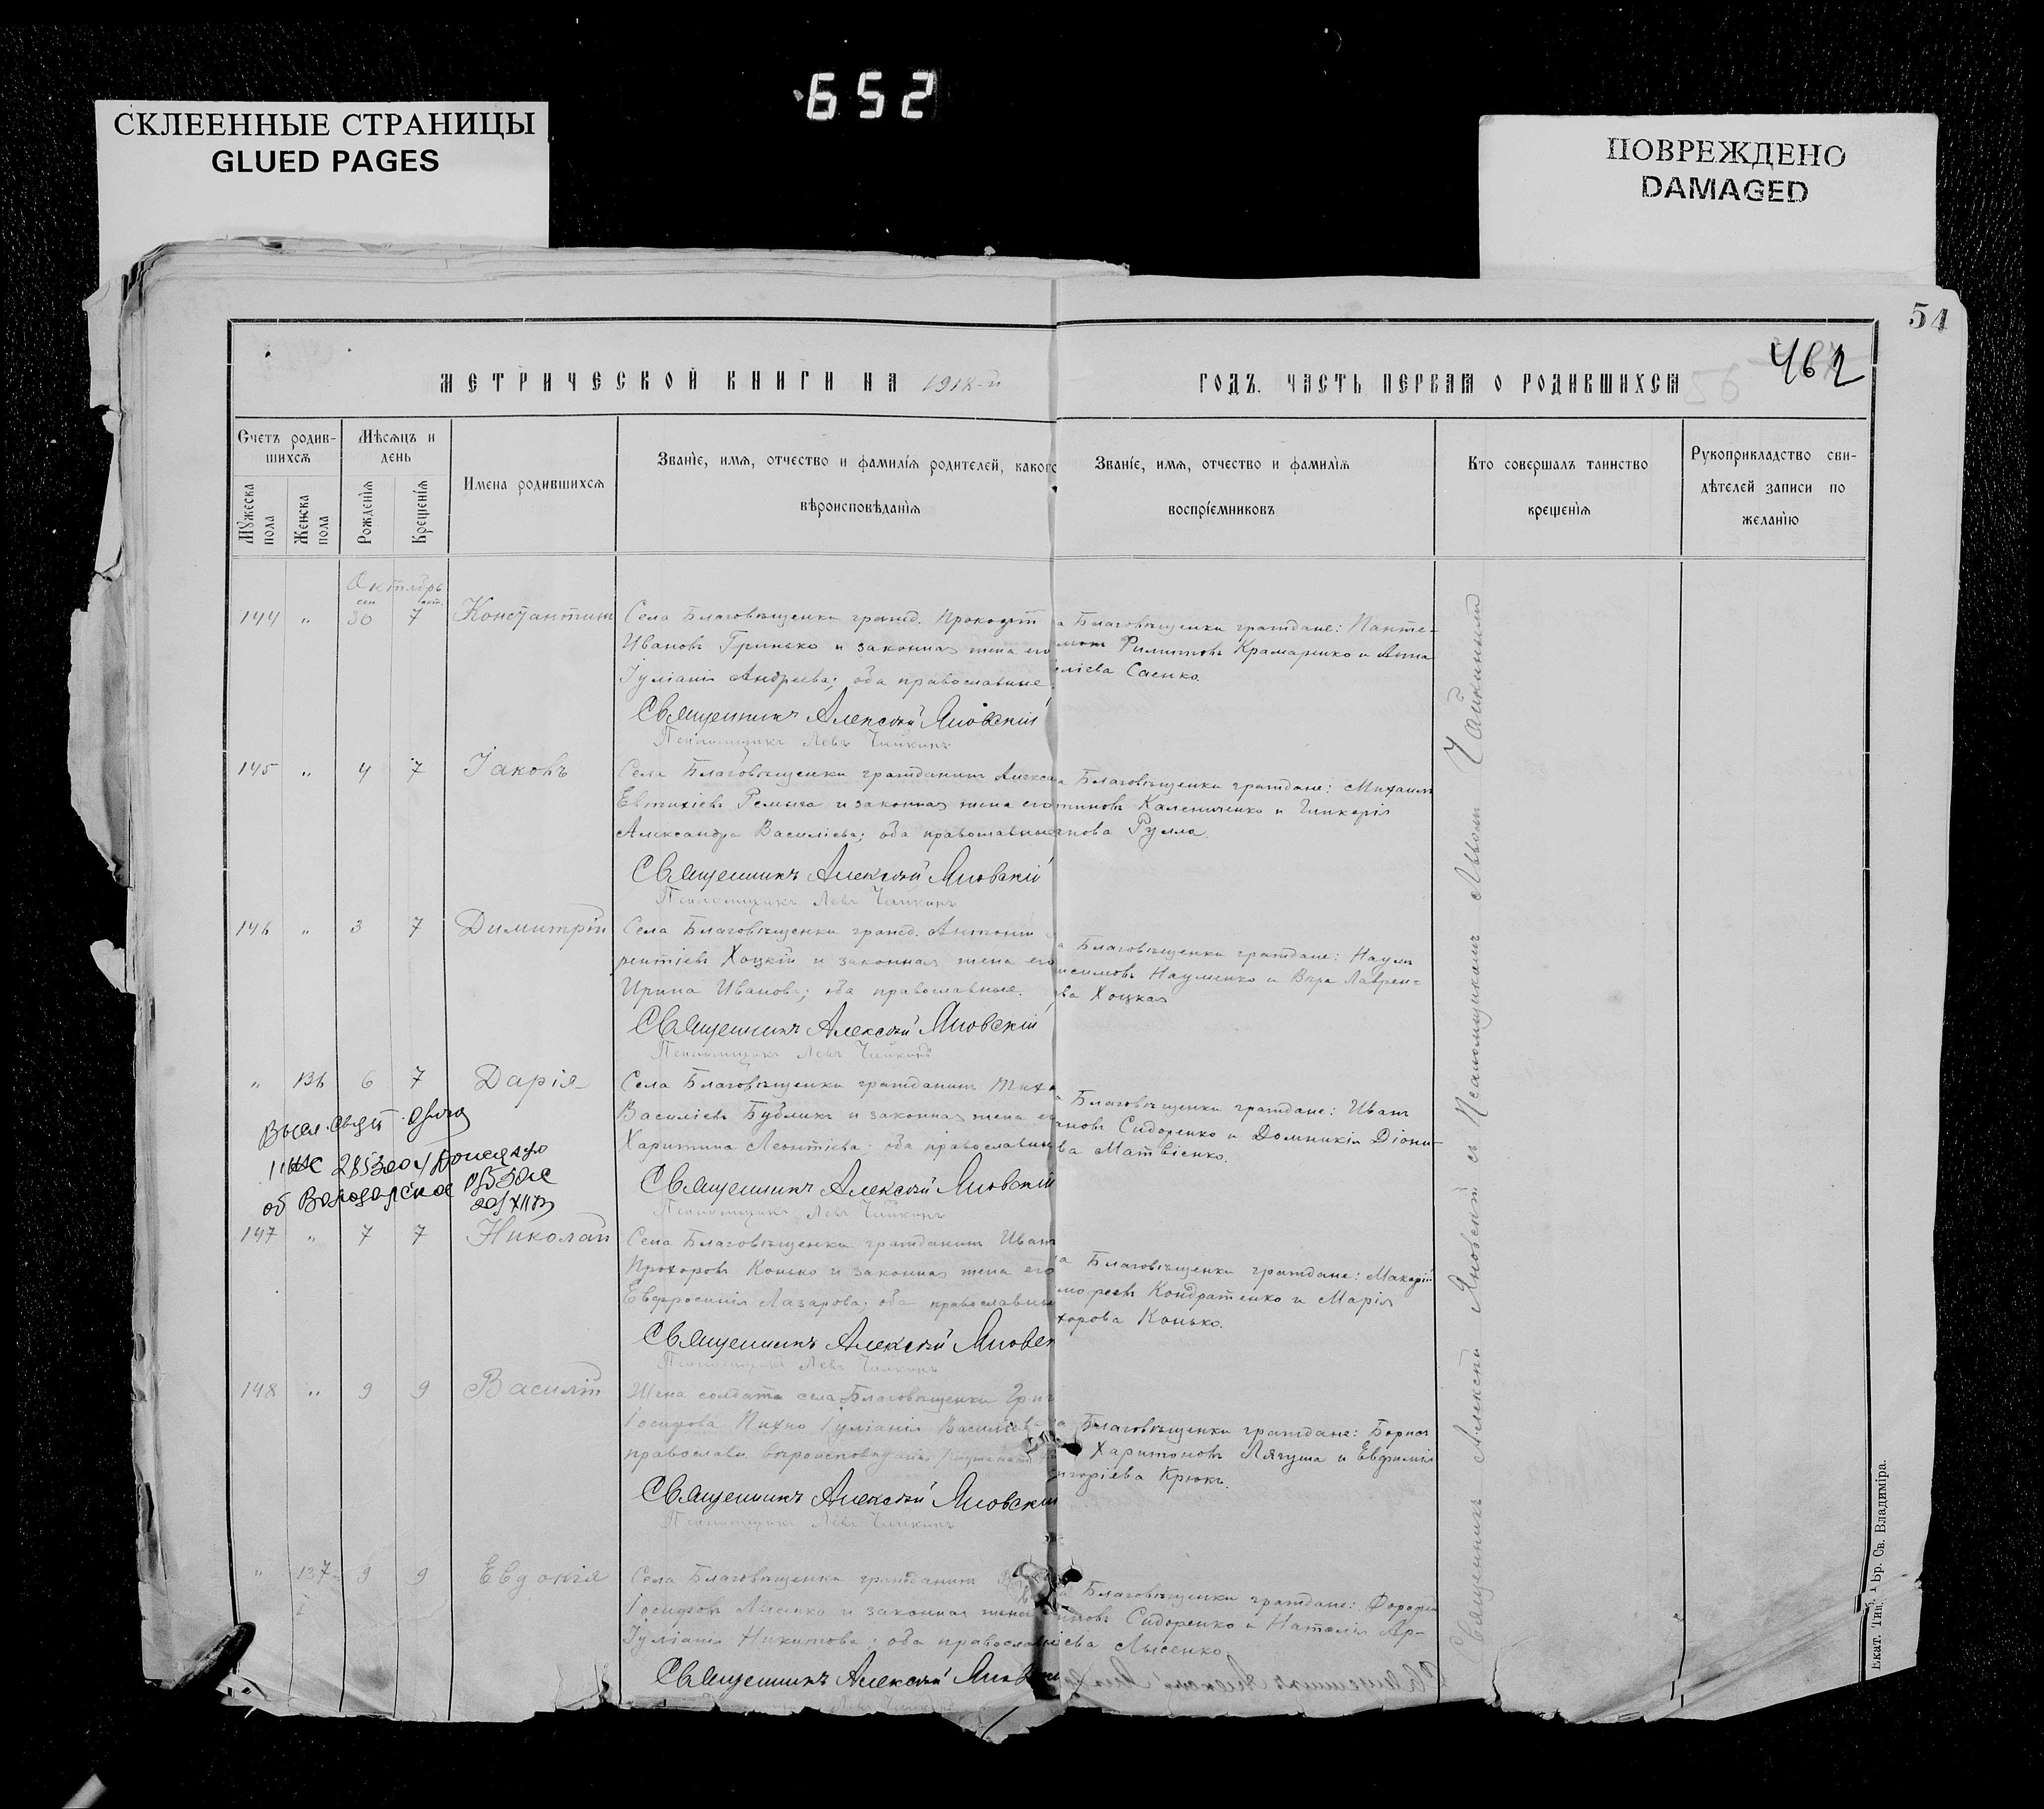 652
СКЛЕЕННЫЕ СТРАНИЦЫ
GLUED PAGES
ПОВРЕЖДЕНО
DAMAGED
54
462
56
МЕТРИЧЕСКОЙ КНИГИ НА 1918-й
ГОДЪ. ЧАСТЬ ПЕРВАЯ О РОДИВШИХСЯ
Счетъ родив-
шихся
Мужеска пола
Женска пола
Мѣсяцъ и
день
Рожденія
Крещенія
Имена родившихся
Званіе, имя, отчество и фамилія родителей, какого
вѣроисповѣданія
Званіе, имя, отчество и фамилія
воспріемниковъ
Кто совершалъ таинство
крещенія
Рукоприкладство сви-
дѣтелей записи по
желанію
Октябрь
144 " 30 7 Константинъ
Села Благовѣщенки гражд. Прокофій
Ивановъ Гринько и законная жена его
Іуліанія Андреева; оба православные.
Священникъ Алексѣй Яновскій
Псаломщикъ Левъ Чайкинъ
а Благовѣщенки граждане: Панте-
Крамаренко и Анна
еліева Саенко.
145 " 4 7 Іаковъ
Села Благовѣщенки гражданинъ Алекса
Евтихіевъ Ремыга и законная жена его
Александра Василіева; оба православные
Священникъ Алексѣй Яновскій
Псаломщикъ Левъ Чайкинъ
а Благовѣщенки граждане: Михаилъ
тиновъ Калениченко и Гликерія
анова Рулла.
146 " 3 7 Димитрій
Села Благовѣщенки гражд. Антоній
рентіевъ Хоцкій и законная жена его
Ирина Иванова; оба православные.
Священникъ Алексѣй Яновскій
Псаломщикъ Левъ Чайкинъ
а Благовѣщенки граждане: Наумъ
исимовъ Науменко и Вѣра Лаврен-
ва Хоцкая
" 136 6 7 Дарія
Села Благовѣщенки гражданинъ Тихо
Василіевъ Бубликъ и законная жена ег
Харитина Леонтіева; оба православны
Священникъ Алексѣй Яновскій
Псаломщикъ Левъ Чайкинъ
а Благовѣщенки граждане: Иванъ
ановъ Сидоренко и Домникія Діони-
ва Матвіенко.
147 " 7 7 Николай
Села Благовѣщенки гражданинъ Иванъ
Прохоровъ Конько и законная жена его
Евфросинія Лазарова; оба православны
Священникъ Алексѣй Яновск
Псаломщикъ Левъ Чайкинъ
а Благовѣщенки граждане: Макарій
моѳеевъ Кондратенко и Марія
хорова Конько.
148 " 9 9 Василій
Жена солдата села Благовѣщенки Григ
Іосифова Пихно Іуліанія Василіева
православн. вѣроисповѣданія
Священникъ Алексѣй Яновскій
Псаломщикъ Левъ Чайкинъ
а Благовѣщенки граждане: Борисъ
Харитоновъ Лягуша и Евфимія
игоріева Крюкъ.
" 137 9 9 Евдокія
Села Благовѣщенки гражданинъ
Іосифовъ Лысенко и законная жена
Іуліанія Никитова; оба православн
Священникъ Алексѣй Яновскій
Левъ Чайкинъ
Благовѣщенки граждане:
Сидоренко и Наталія Ар-
іева Лысенко
Священникъ Алексѣй Яновскій съ Псаломщикомъ Львомъ Чайкинымъ
Екат. Тип. Бр. Св. Владиміра.